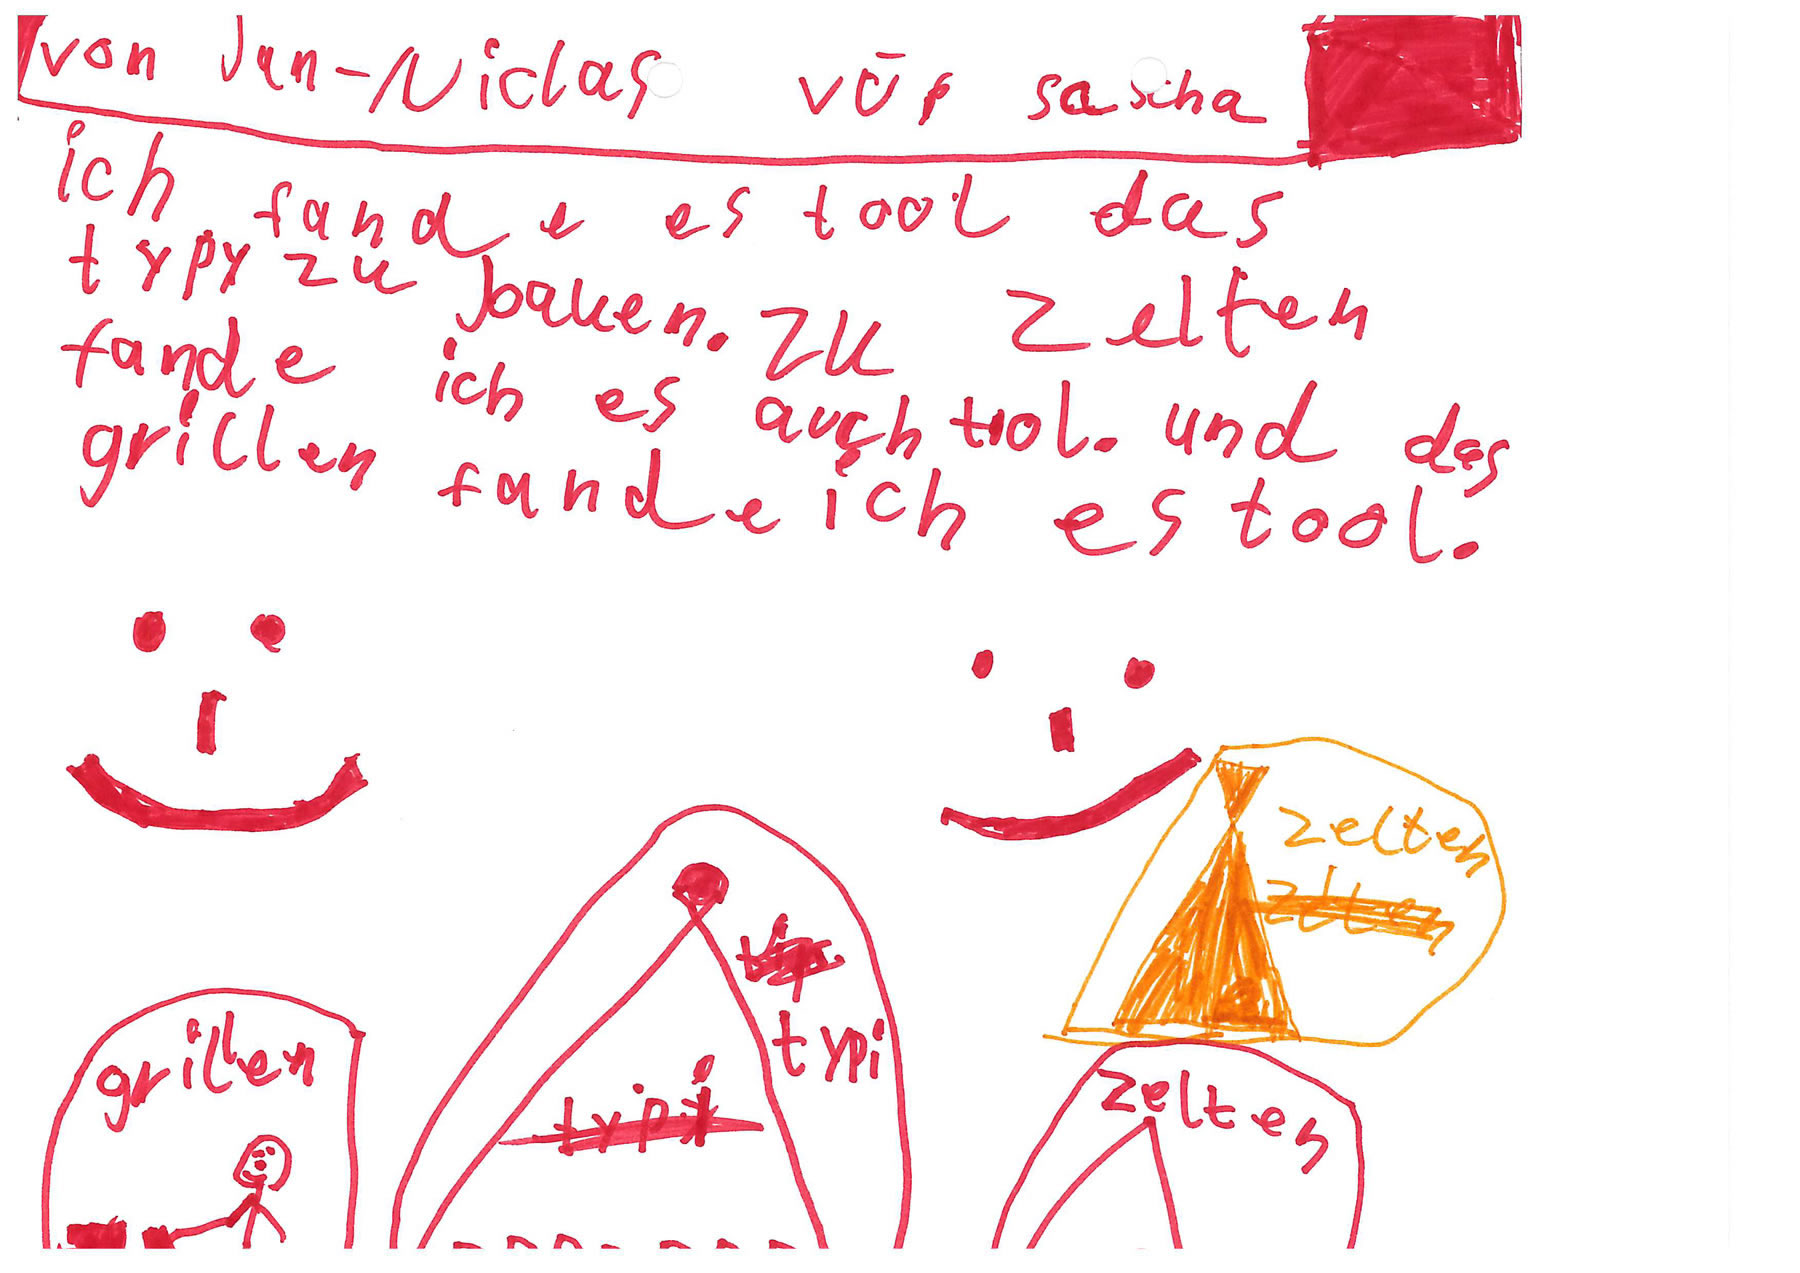 von Jan-Niclas vür sascha
ich fande es tool das
typy zu bauen. zu zelten
fande ich es auch tol. und das
grillen fande ich es tool.
zelten
zelten
typi
typi
grillen
zelten